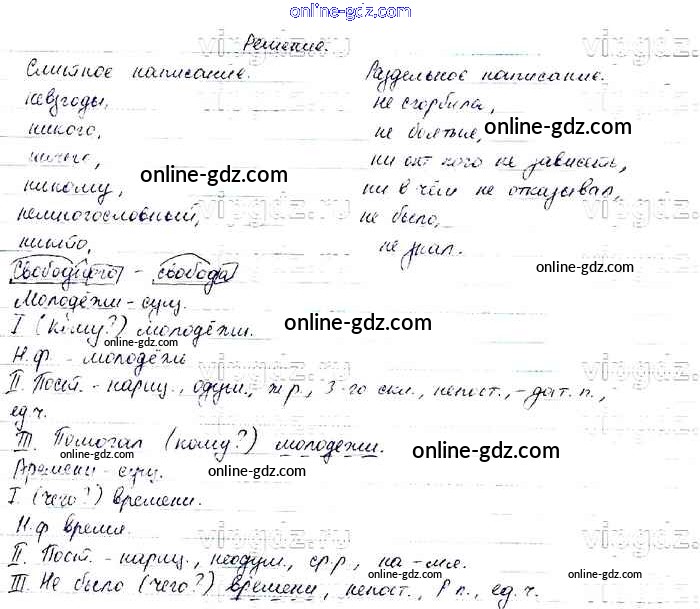 online-gdz.com
Решение.
Слитное написание. Раздельное написание.
невзгоды, не сгорбила,
никого, не болтлив, online-gdz.com
ничего, online-gdz.com ни от кого не зависеть,
никому, ни в чём не отказывал,
немногословный, не было,
не знал.
online-gdz.com
- свобода
Молодёжи - сущ.
I (кому?) молодёжи. online-gdz.com
Н.ф. - молодёжь online-gdz.com
II. Пост. - нариц., одуш., ж.р., 3-го скл., непост., - дат. п.,
ед.ч.
III. Помогал (кому?) молодежи. online-gdz.com
Времени - сущ. online-gdz.com online-gdz.com
I. (чего?) времени.
Н.ф время.
II. Пост. - нариц., неодуш., ср.р., на -мя.
III. Не было (чего?) времени, непост., Р п., ед.ч.
online-gdz.com